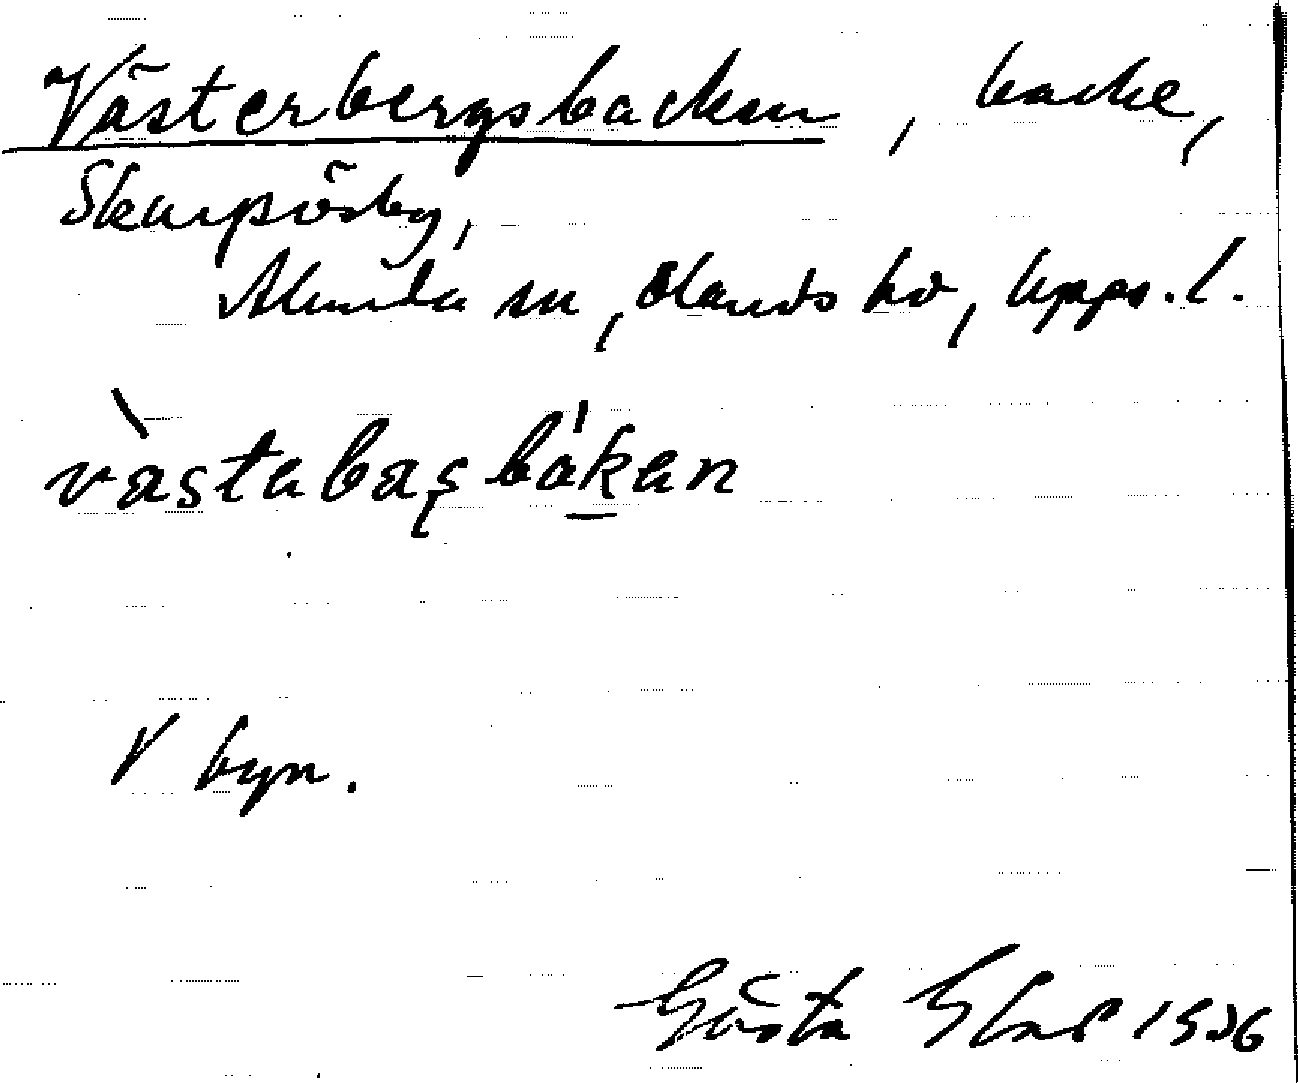 Västerbergsbacken, backe,
Skarpösby,
Alunda sn, Olands hd, Upps. l.
våstabasbåkan
V byn.
Gösta 1936